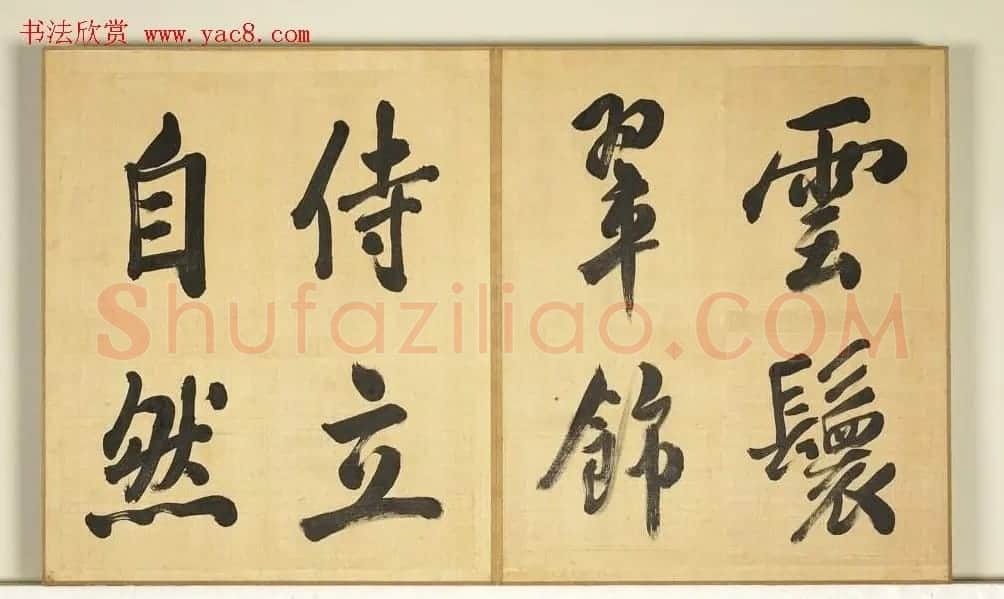 书法欣赏 www.yac8.com
雲鬟
翠飾
侍立
自然
Shufaziliao.COM